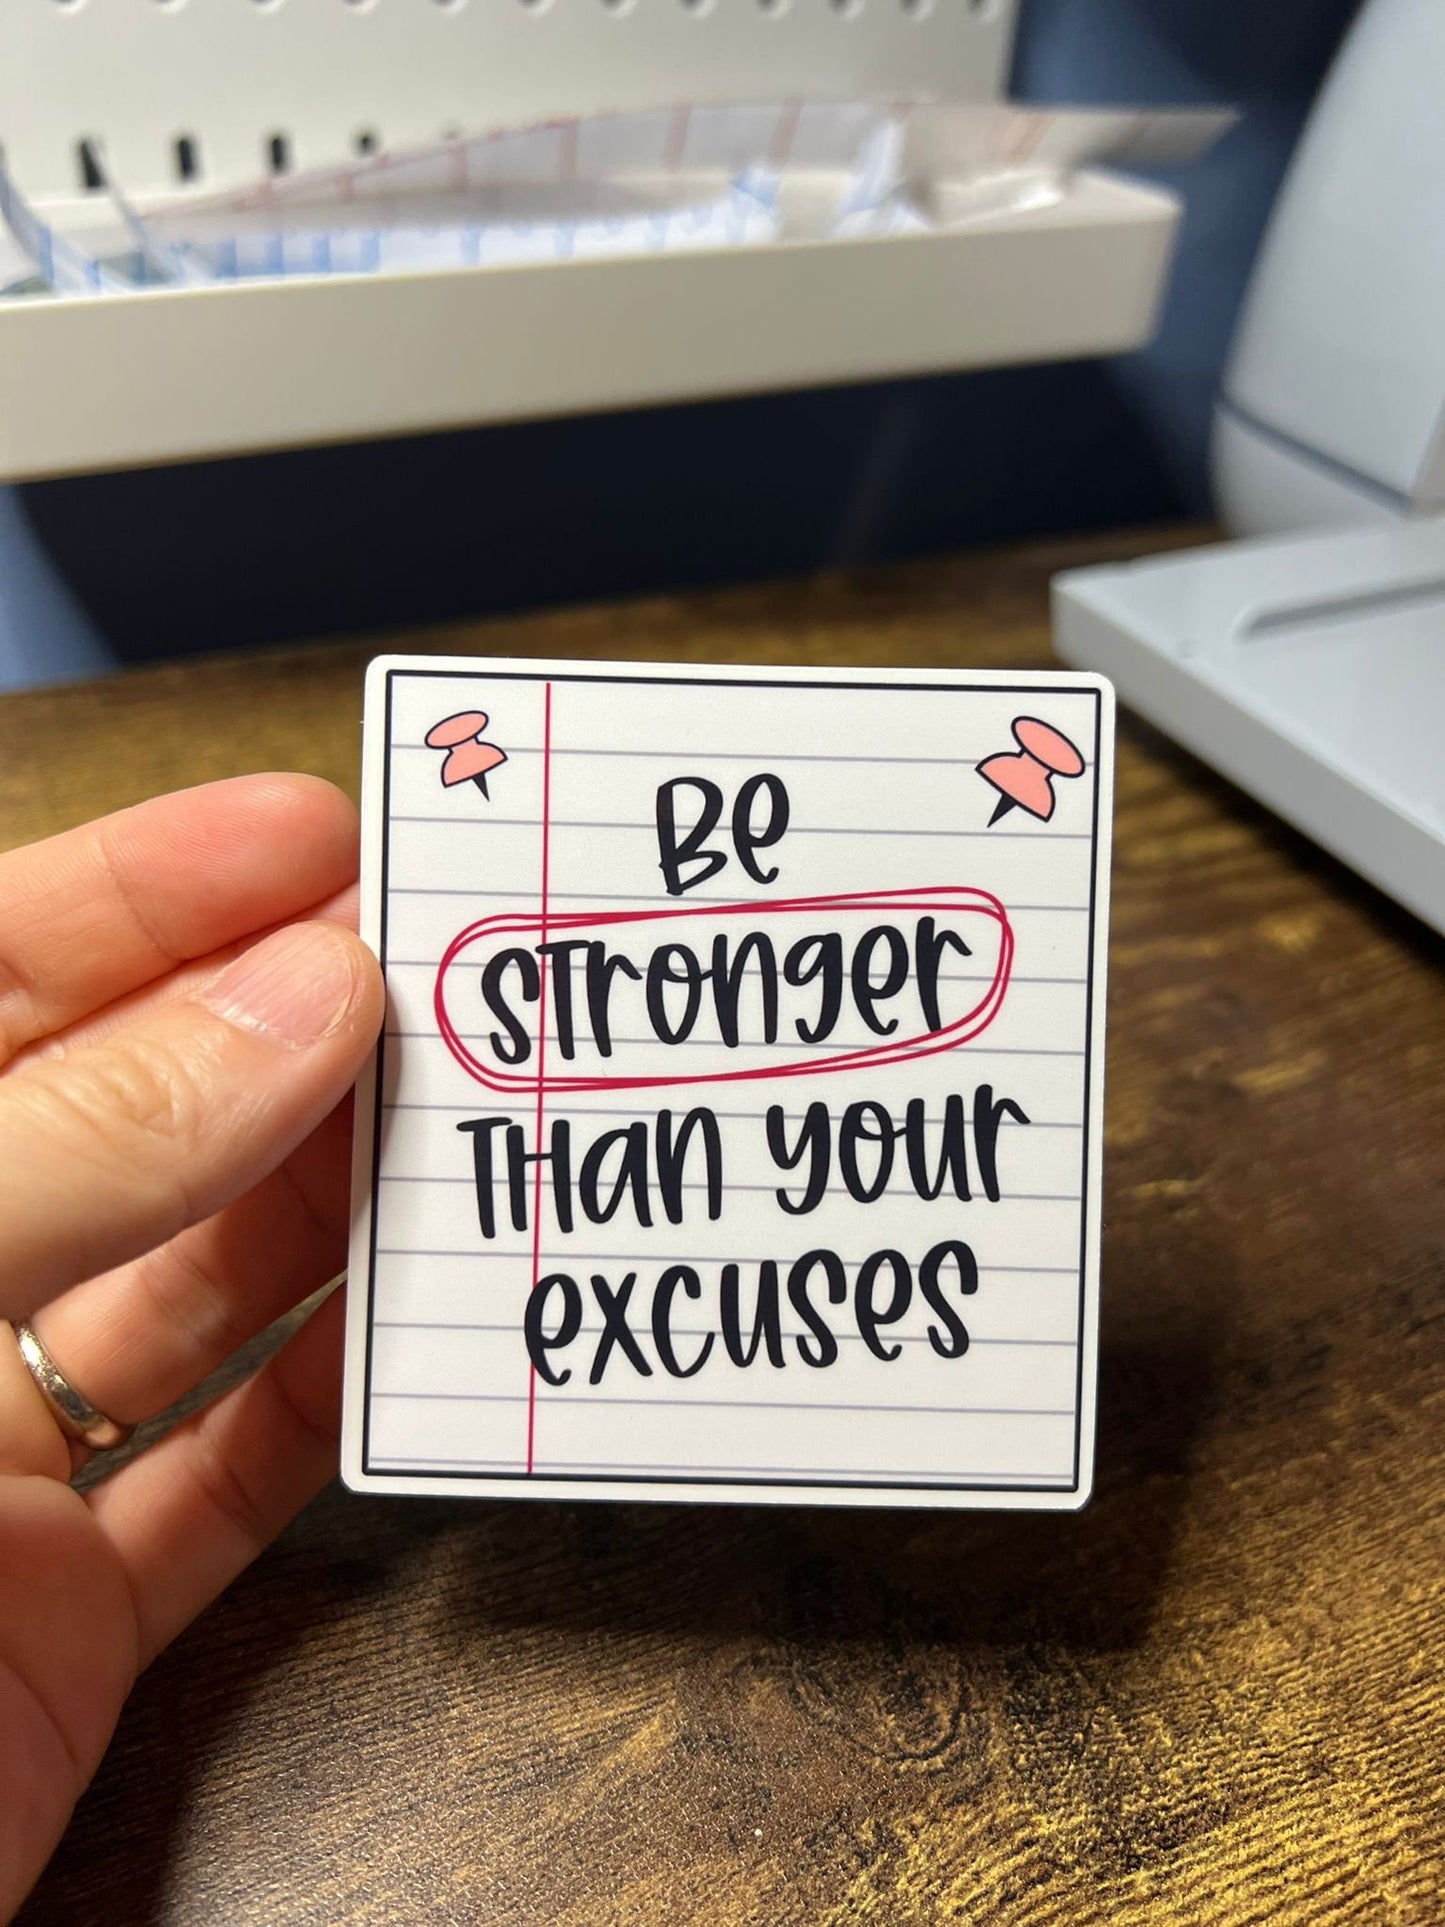 Be
STronger
THan your
excuses